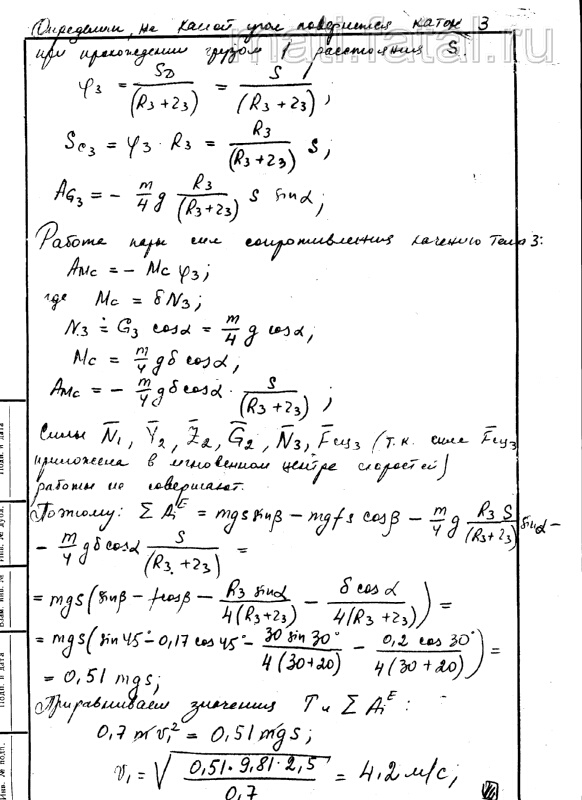 Определим, на какой угол повернется каток 3
при прохождении грузом 1 расстояния S.
math.fatal.ru
φ3 = SD / (R3 + r3) = S / (R3 + r3);
SC3 = φ3 · R3 = R3 / (R3 + r3) S;
AG3 = − m/4 g R3 / (R3 + r3) S sinα;
Работа пары сил сопротивления качению тела 3:
AMc = − Mc φ3;
где Mc = δN3;
N3 = G3 cosα = m/4 g cosα;
Mc = m/4 gδ cosα;
AMc = − m/4 gδ cosα · S / (R3 + r3);
Силы N̄1, Ȳ2, Z̄2, Ḡ2, N̄3, F̄сц3 (т.к. сила F̄сц3
приложена в мгновенном центре скоростей)
работы не совершают.
Поэтому: Σ AiE = mgs sinβ − mgfs cosβ − m/4 g R3 S / (R3 + r3) sinα −
− m/4 gδ cosα S / (R3 + r3) =
= mgs (sinβ − fcosβ − R3 sinα / 4(R3 + r3) − δ cosα / 4(R3 + r3)) =
= mgs (sin 45° − 0,17 cos 45° − 30 sin 30° / 4(30+20) − 0,2 cos 30° / 4(30+20)) =
= 0,51 mgs;
Приравниваем значения T и Σ AiE:
0,7 m v1² = 0,51 mgs;
v1 = √(0,51 · 9,81 · 2,5 / 0,7) = 4,2 м/с;
Подп. и дата
Инв. № дубл.
Взам. инв. №
Подп. и дата
Инв. № подл.